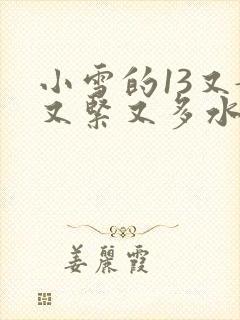 小雪的13又
又紧又多水
姜丽霞